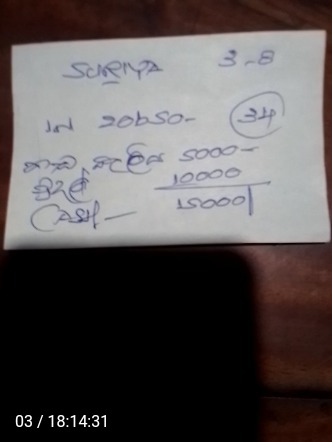 SURIYA 3-8
IN 20650- 34
5000-
මුදල් 10000
CASH - 15000
03 / 18:14:31